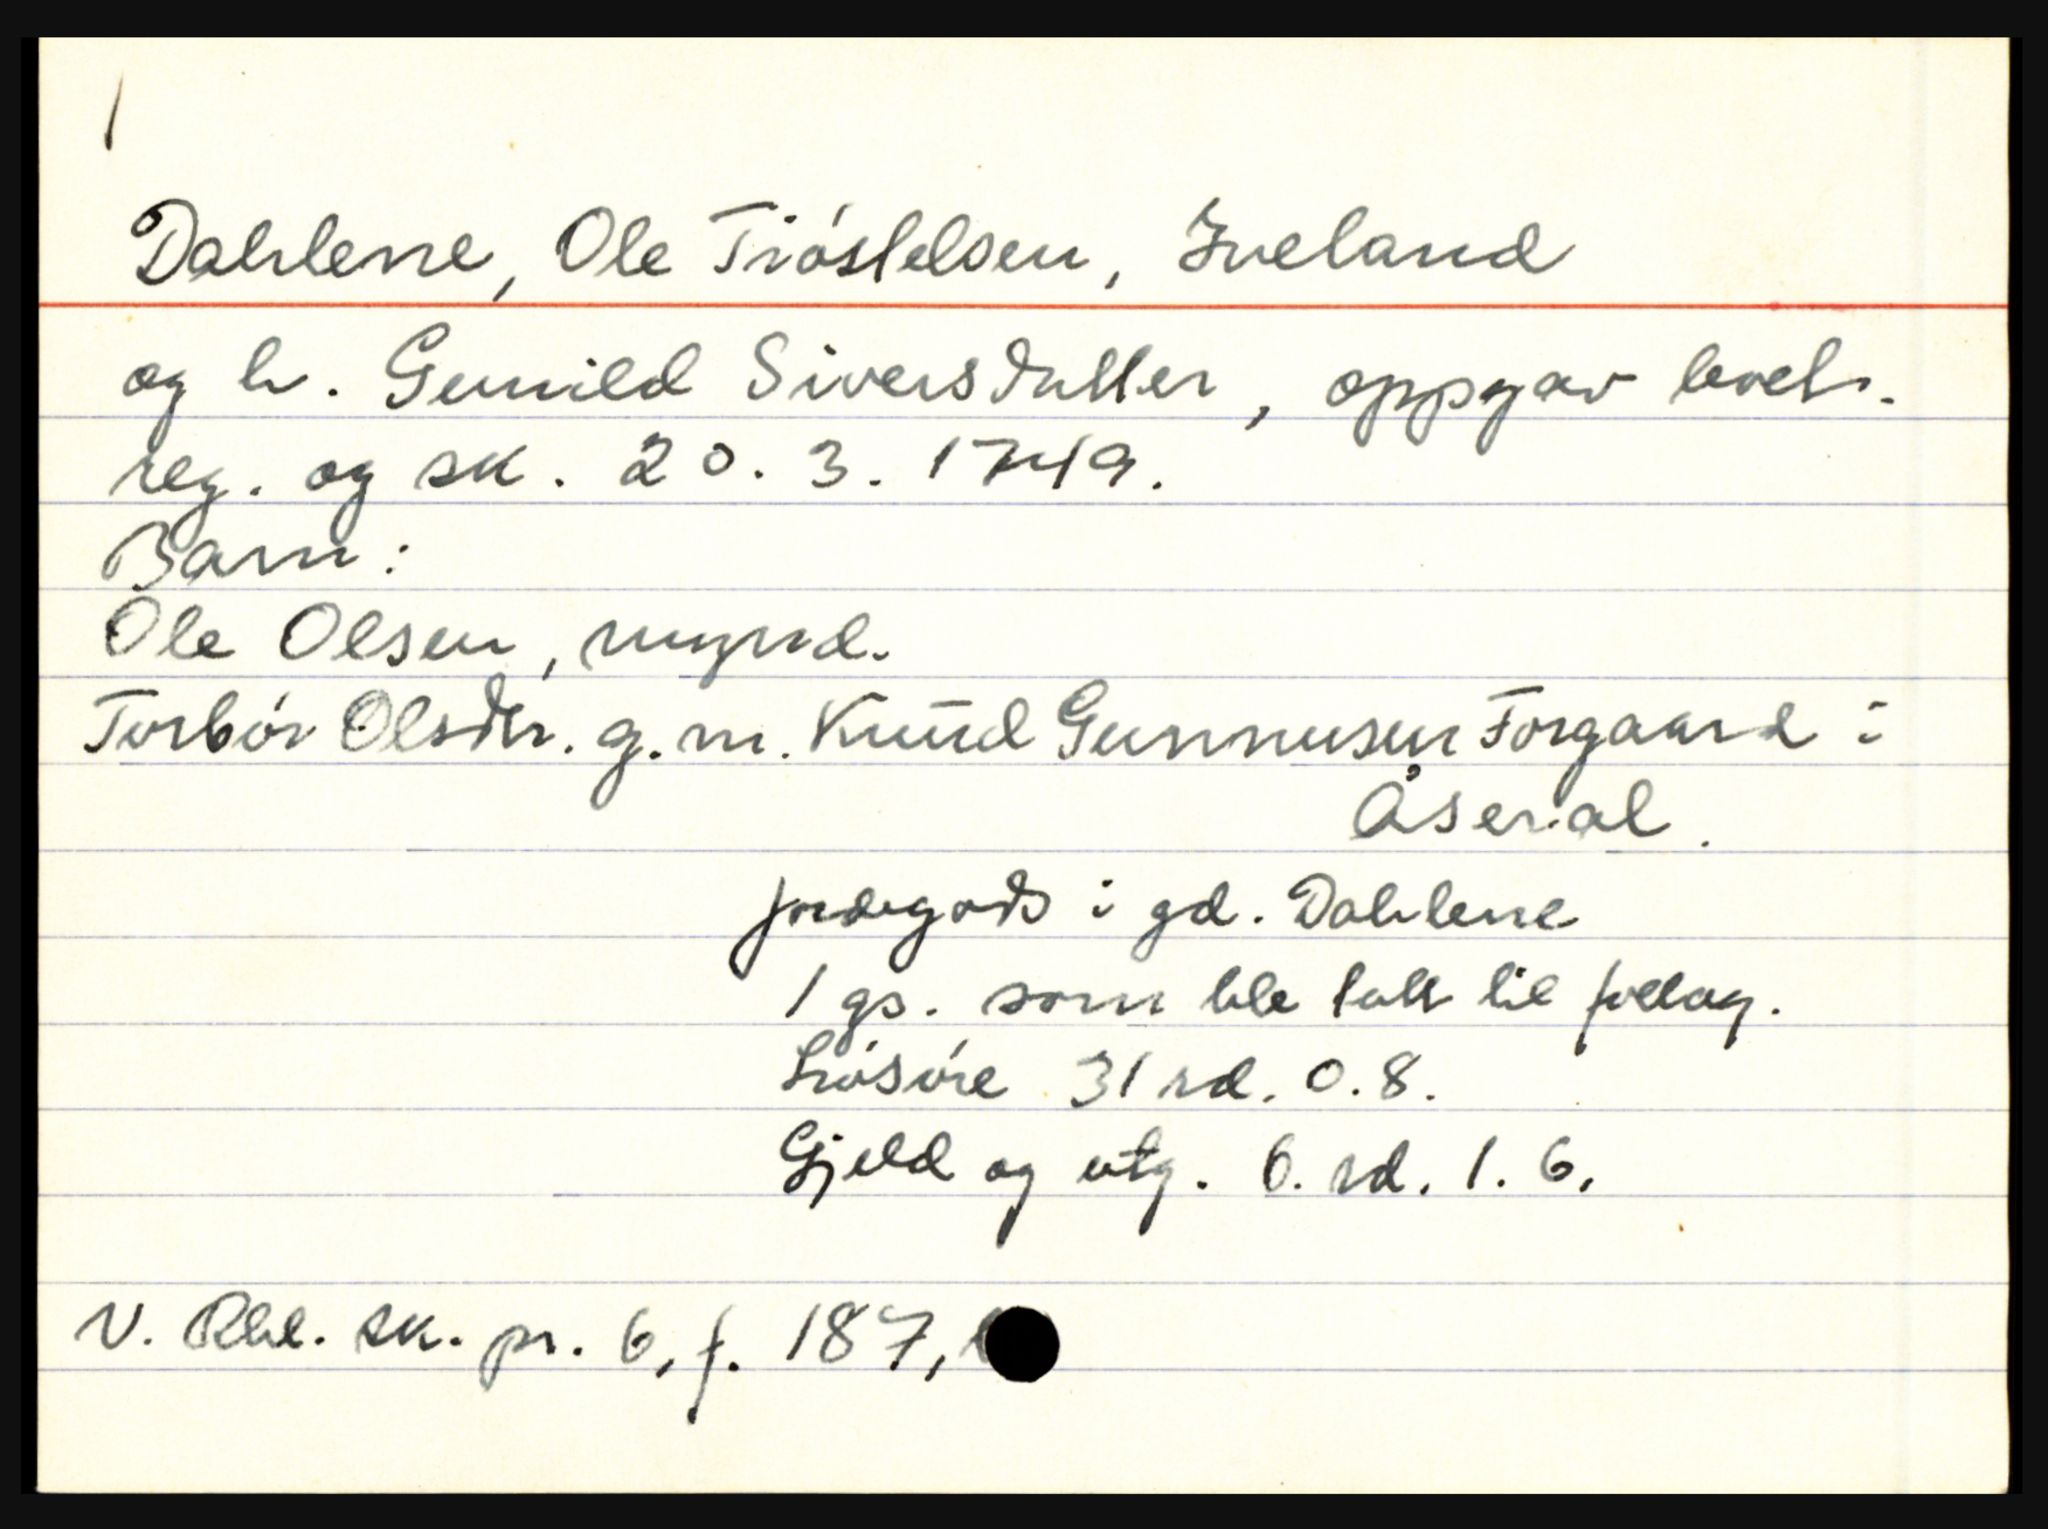 Dahlene, Ole Tiøstelsen, Iveland
og h. Gunild Siversdatter, oppgav leveb.
reg. og sk. 20. 3. 1749.
Barn:
Ole Olsen, mynd.
Torbør Olsdtr. g. m. Knud Gunnusen Forgaard i
Åseral.
jordegods i gd. Dahlene
1 gs. som ble tatt til fellag.
Løsøre 31 rd. 0. 8.
Gjeld og utg. 6. rd. 1. 6.
V. Rbl. sk. pr. 6, f. 187,